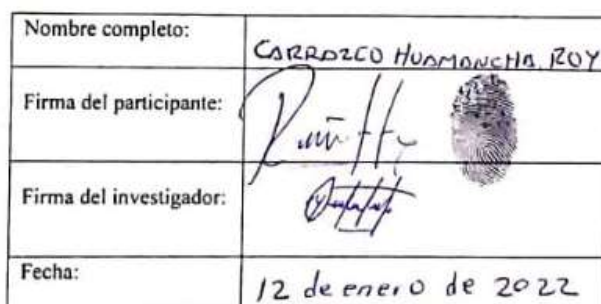 Nombre completo:
CARRAZCO HUAMANCHA ROY
Firma del participante:
Firma del investigador:
Fecha:
12 de enero de 2022